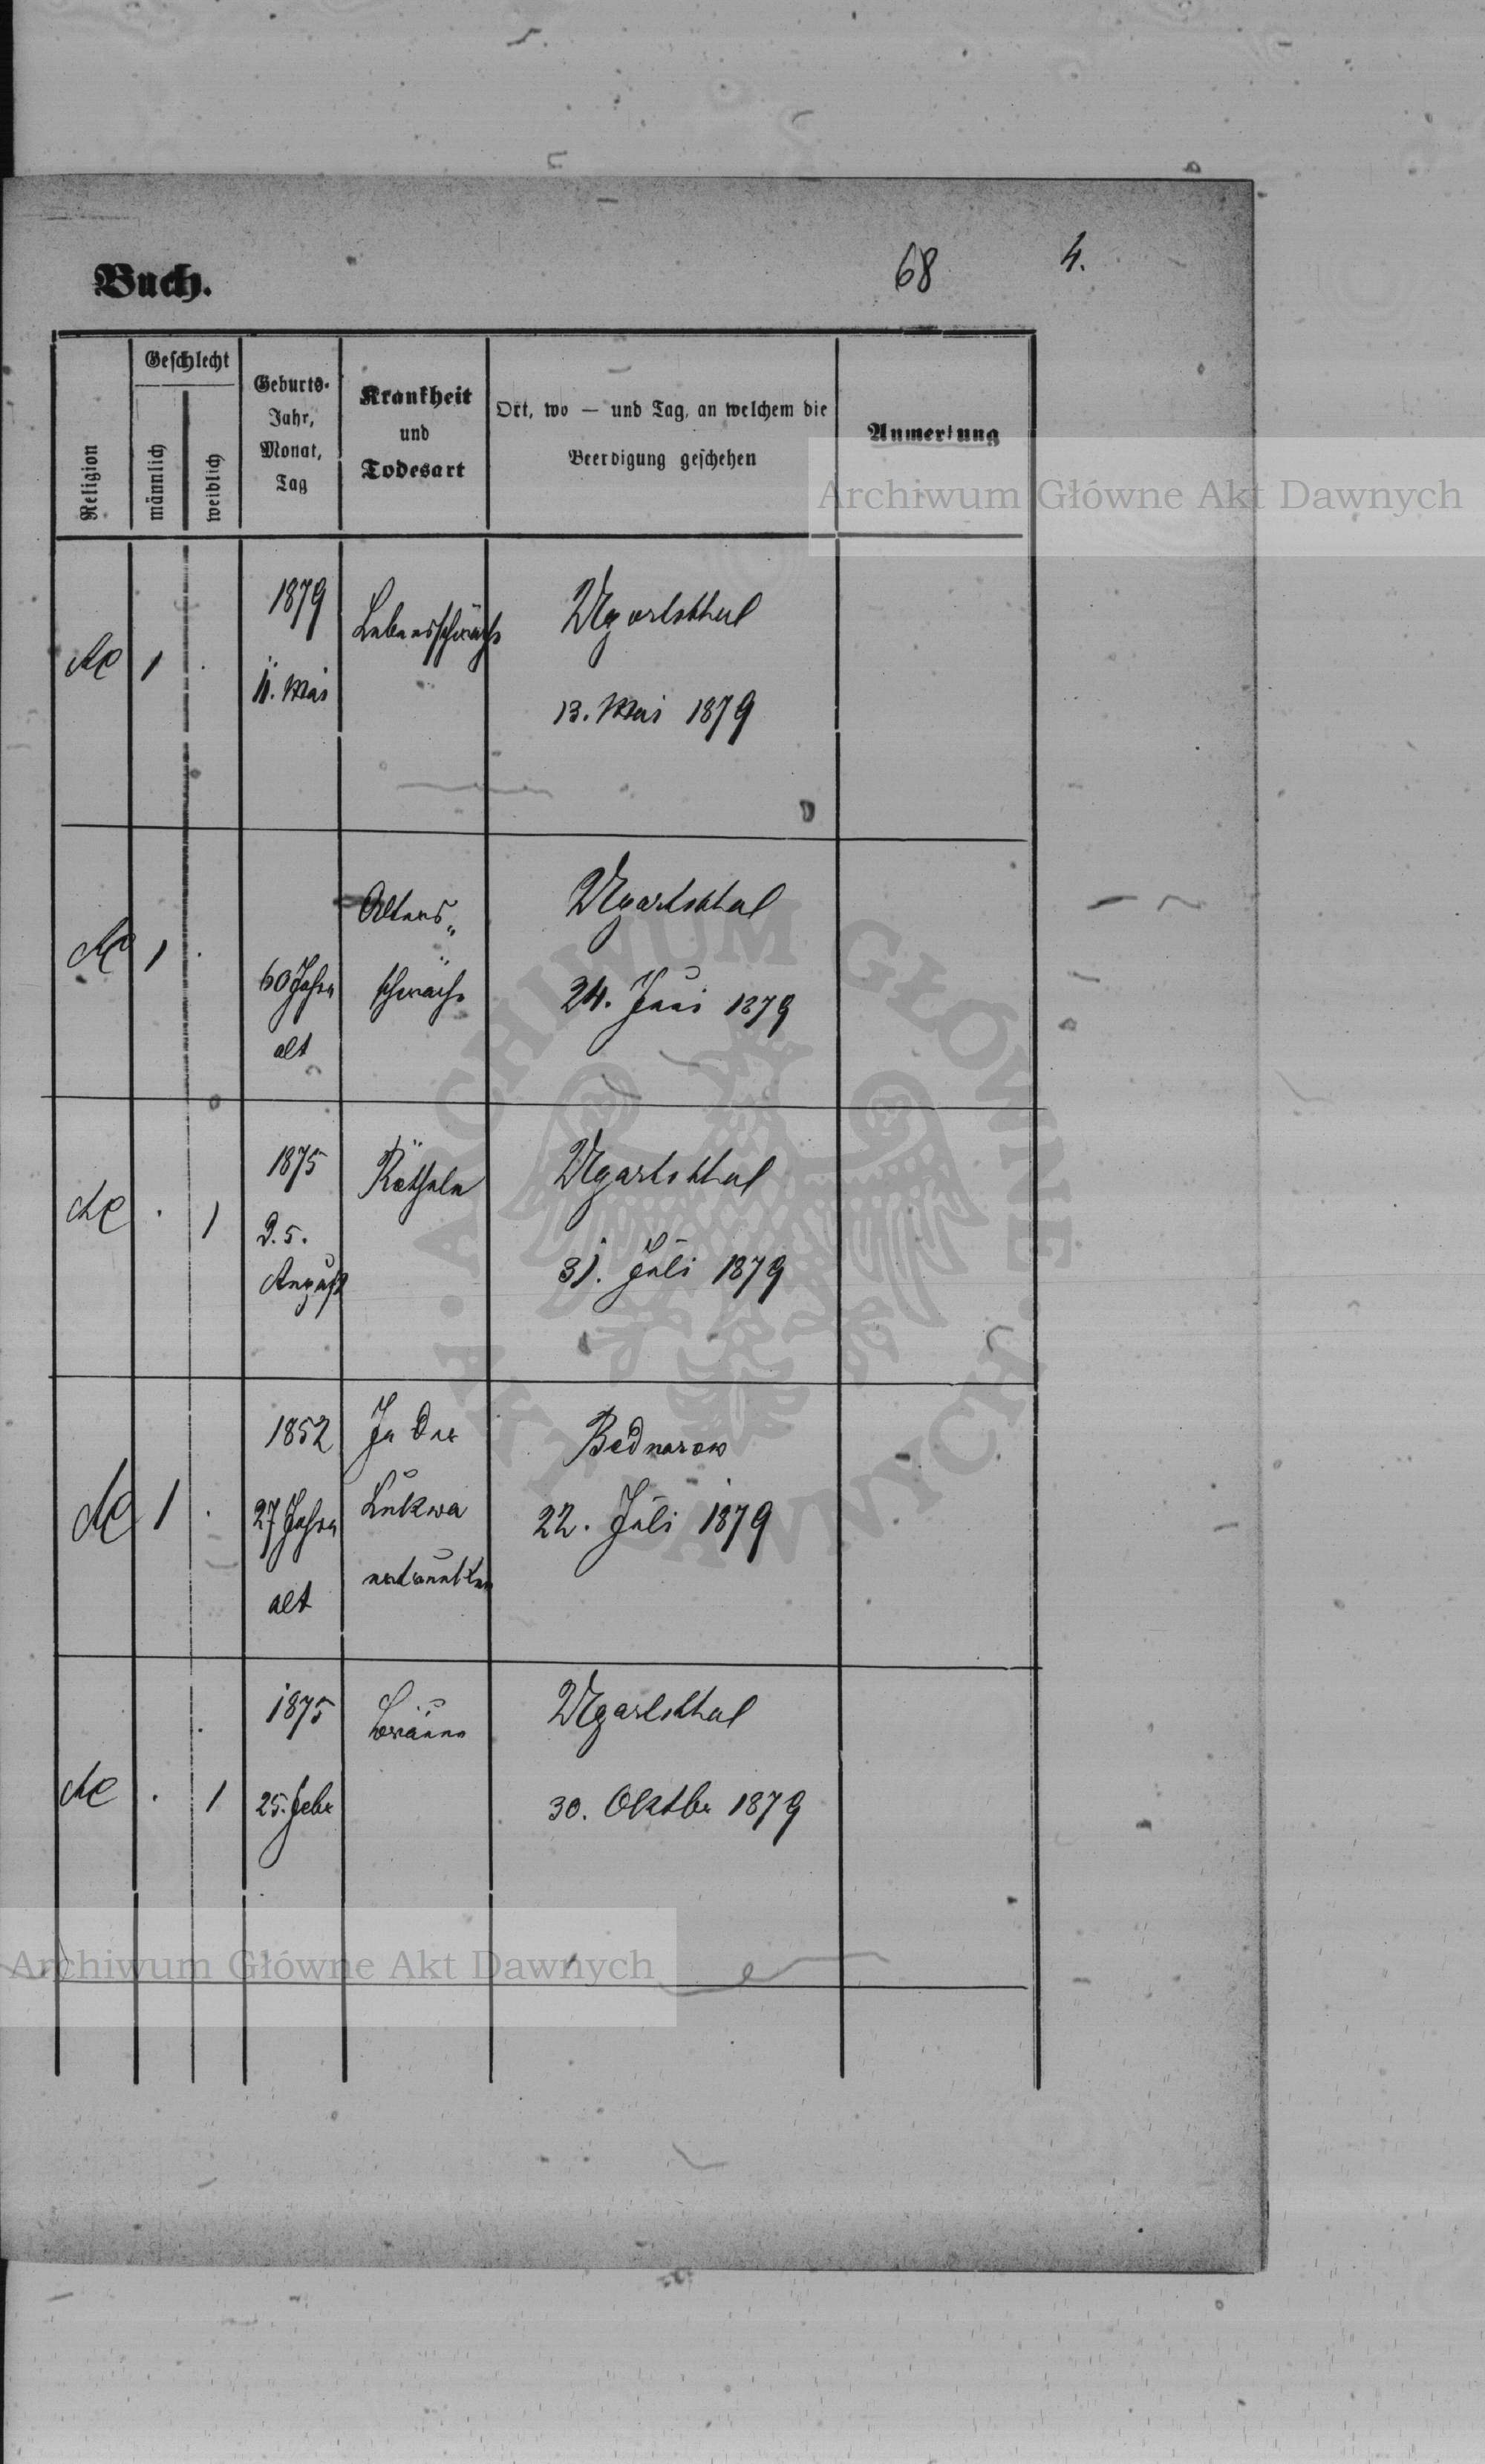 Buch.
68
4.
Religion
Geschlecht
männlich
weiblich
Geburts-
Jahr,
Monat,
Tag
Krankheit
und
Todesart
Ort, wo — und Tag, an welchem die
Beerdigung geschehen
Anmerkung
Archiwum Główne Akt Dawnych
1
.
1879
11. Mai
Lebensschwäche
Ugartsthal
13. Mai 1879
1
.
60 Jahre
alt
Alters„
schwäche
Ugartsthal
24. Juni 1879
.
1
1875
August
Rötheln
Ugartsthal
31. Juli 1879
1
.
1852
27 Jahre
alt
In der
Lukwa
ertrunken
Bednarow
22. Juli 1879
.
1
1875
25. Febr
Bräune
Ugartsthal
30. Oktbr 1879
ARCHIWUM GŁÓWNE
· AKT DAWNYCH ·
Archiwum Główne Akt Dawnych